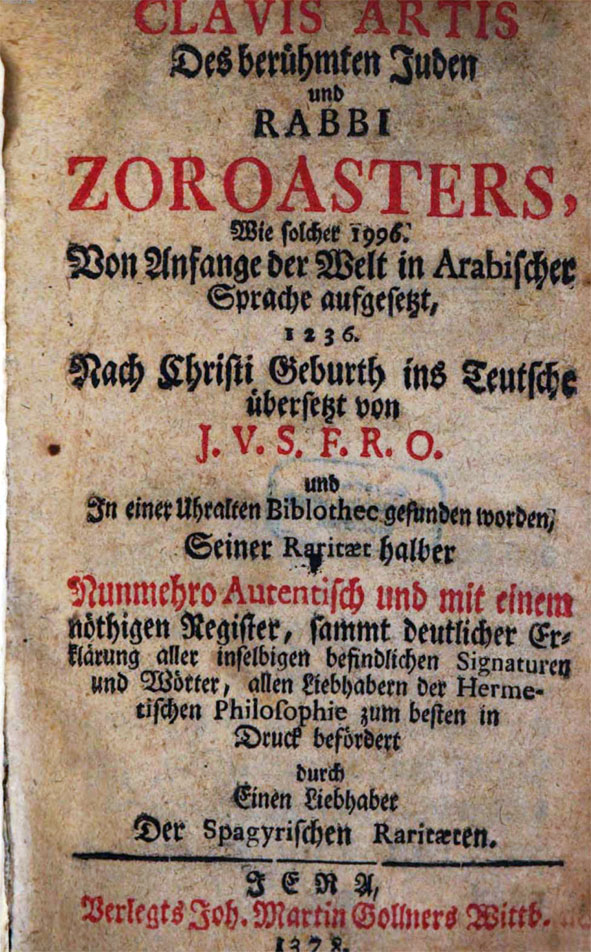 CLAVIS ARTIS
Des berühmten Juden
und
RABBI
ZOROASTERS,
Wie solcher 1996.
Von Anfange der Welt in Arabischer
Sprache aufgesetzt,
1236.
Nach Christi Geburth ins Teutsche
übersetzt von
J. V. S. F. R. O.
und
In einer Uhralten Biblothec gefunden worden,
Seiner Raritæt halber
Nunmehro Autentisch und mit einem
nöthigen Register, sammt deutlicher Er-
klärung aller inselbigen befindlichen Signaturen
und Wörter, allen Liebhabern der Herme-
tischen Philosophie zum besten in
Druck befördert
durch
Einen Liebhaber
Der Spagyrischen Raritæten.
JERA,
Verlegts Joh. Martin Gollners Wittb.
1378.